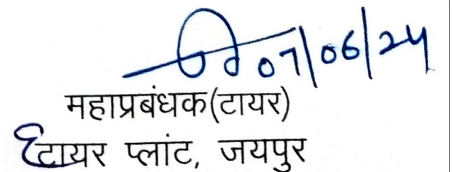 07/06/24
महाप्रबंधक(टायर)
टायर प्लांट, जयपुर